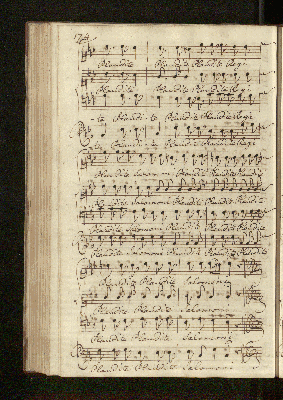 Plaudite Plaudite Plaudite Regi
Plaudite Plaudite Plaudite Regi
Plaudite Salomoni Plaudite Plaudite Plaudite
Plaudite Salomoni Plaudite Plaudite Plaudite
Plaudite Salomoni Plaudite Plaudite Plaudite
Plaudite Salomoni Plaudite Plaudite Plaudite
Plaudite Plaudite Salomoni
Plaudite Plaudite Salomoni
Plaudite Plaudite Salomoni
Plaudite Plaudite Salomoni